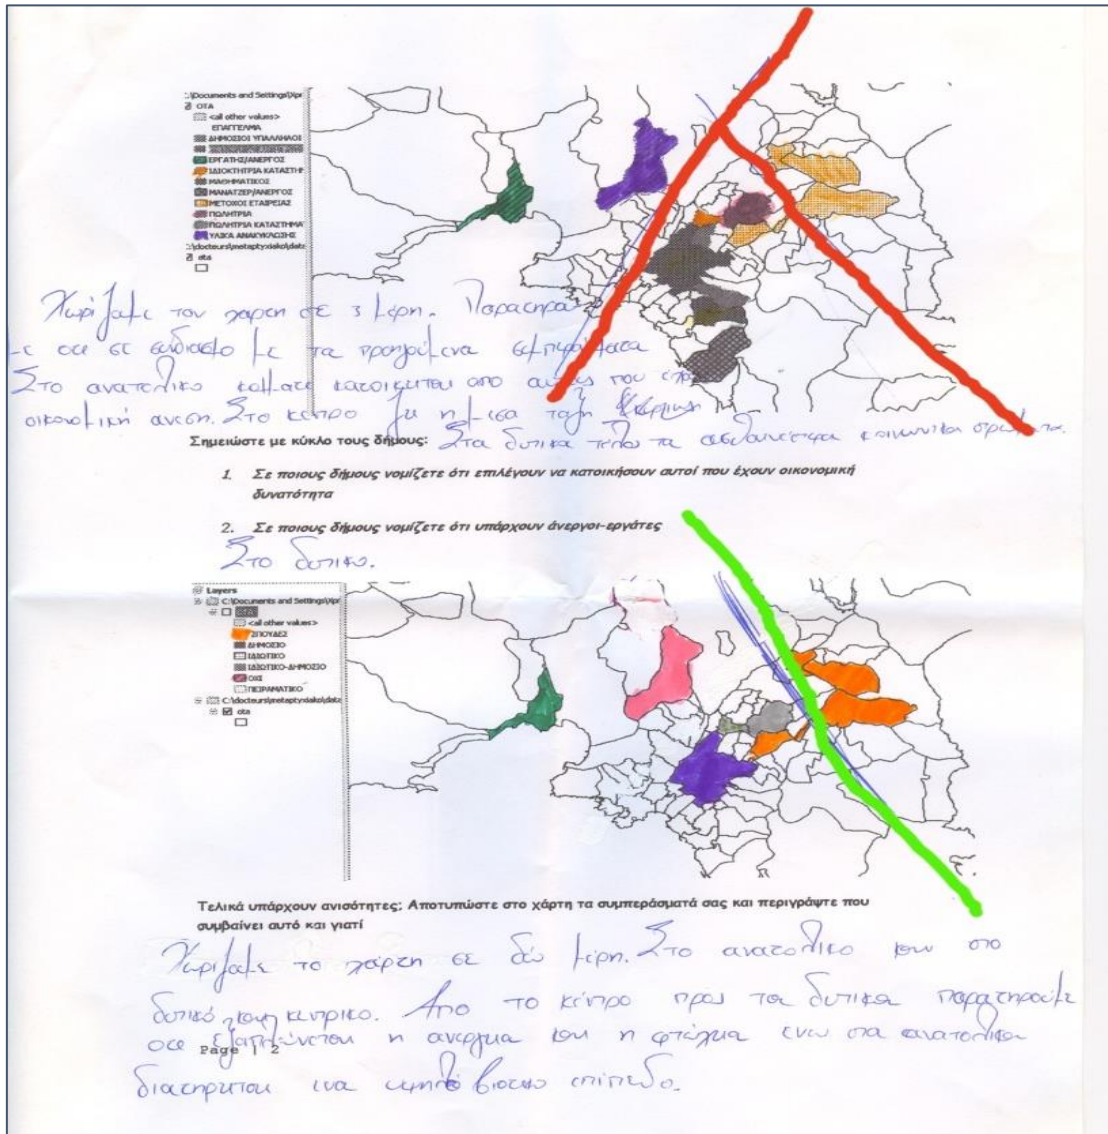 :\Documents and Settings\Xpr
OTA
<all other values>
ΕΠΑΓΓΕΛΜΑ
ΔΗΜΟΣΙΟΙ ΥΠΑΛΛΗΛΟΙ
ΕΡΓΑΤΗΣ/ΑΝΕΡΓΟΣ
ΙΔΙΟΚΤΗΤΡΙΑ ΚΑΤΑΣΤΗΜ
ΜΑΘΗΜΑΤΙΚΟΣ
ΜΑΝΑΤΖΕΡ/ΑΝΕΡΓΟΣ
ΜΕΤΟΧΟΣ ΕΤΑΙΡΕΙΑΣ
ΠΩΛΗΤΡΙΑ
ΠΩΛΗΤΡΙΑ ΚΑΤΑΣΤΗΜΑΤ
ΥΛΙΚΑ ΑΝΑΚΥΚΛΩΣΗΣ
:\docteurs\metaptyxiako\data
ota
Χωρίζαμε τον χάρτη σε 3 μέρη. Παρατηρού
με οτι σε συνδιασμο με τα προηγούμενα συμπεράσματα
Στο ανατολικο κομματι κατοικηται απο αυτους που εχουν
οικονομική ανεση. Στο κεντρο ζει η μεσα ταξη
Σημειώστε με κύκλο τους δήμους: Στα δυτικα τελος τα ασθενέστερα κοινωνικα στρωματα.
1. Σε ποιους δήμους νομίζετε ότι επιλέγουν να κατοικήσουν αυτοί που έχουν οικονομική
δυνατότητα
2. Σε ποιους δήμους νομίζετε ότι υπάρχουν άνεργοι-εργάτες
Στο δυτικο.
Layers
C:\Documents and Settings\Xpr
OTA
<all other values>
ΣΠΟΥΔΕΣ
ΔΗΜΟΣΙΟ
ΙΔΙΩΤΙΚΟ
ΙΔΙΩΤΙΚΟ-ΔΗΜΟΣΙΟ
ΟΧΙ
ΠΕΙΡΑΜΑΤΙΚΟ
C:\docteurs\metaptyxiako\data
ota
Τελικά υπάρχουν ανισότητες; Αποτυπώστε στο χάρτη τα συμπεράσματά σας και περιγράψτε που
συμβαίνει αυτό και γιατί
Χωρίζαμε το χάρτη σε δύο μέρη. Στο ανατολικο και στο
δυτικό και κεντρικο. Απο το κέντρο προς τα δυτικα παρατηρούμε
οτι εξαπλώνεται η ανεργια και η φτώχια ενω στα ανατολικα
Page | 2
διατηρηται ενα υψηλό βιοτικο επίπεδο.